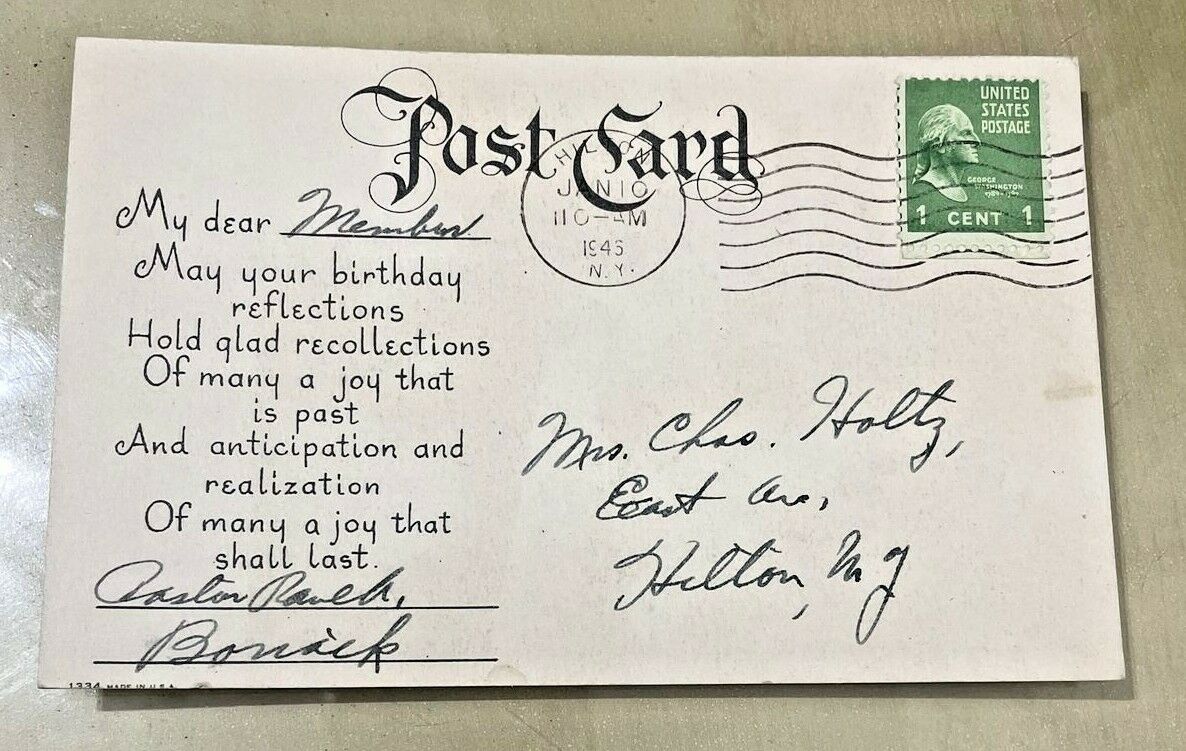 Post Card
HILTON
JAN 10
11 0-AM
1946
N.Y.
UNITED
STATES
POSTAGE
GEORGE
WASHINGTON
1 CENT 1
My dear Member
May your birthday
reflections
Hold glad recollections
Of many a joy that
is past
And anticipation and
realization
Of many a joy that
shall last.
Pastor
Mrs. Chas. Holtz,
East Ave,
Hilton, N Y
1334 MADE IN U.S.A.